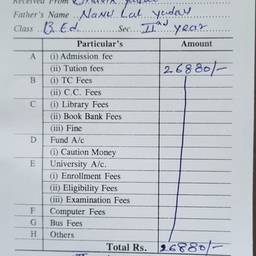 Received From
Father's Name Nanu Lal yadav
Class B.Ed. Sec. IInd year
Particular's Amount
A (i) Admission fee
(ii) Tution fees 26880/-
B (i) TC Fees
(ii) C.C. Fees
C (i) Library Fees
(ii) Book Bank Fees
(iii) Fine
D Fund A/c
(i) Caution Money
E University A/c.
(i) Enrollment Fees
(ii) Eligibility Fees
(iii) Examination Fees
F Computer Fees
G Bus Fees
H Others
Total Rs. 26880/-